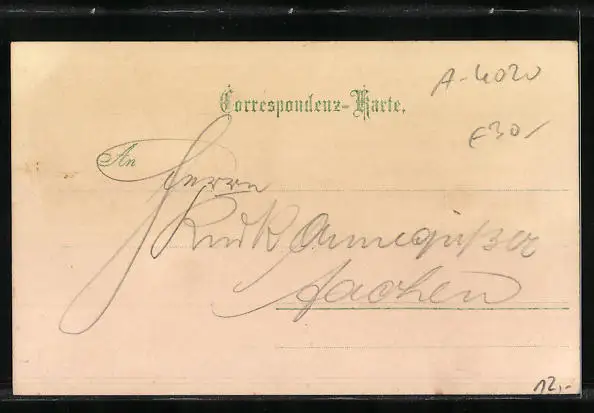 A-4020
Correspondenz-Karte.
£30/
An
Herrn
Rud. Kannegießer
Aachen
12,-